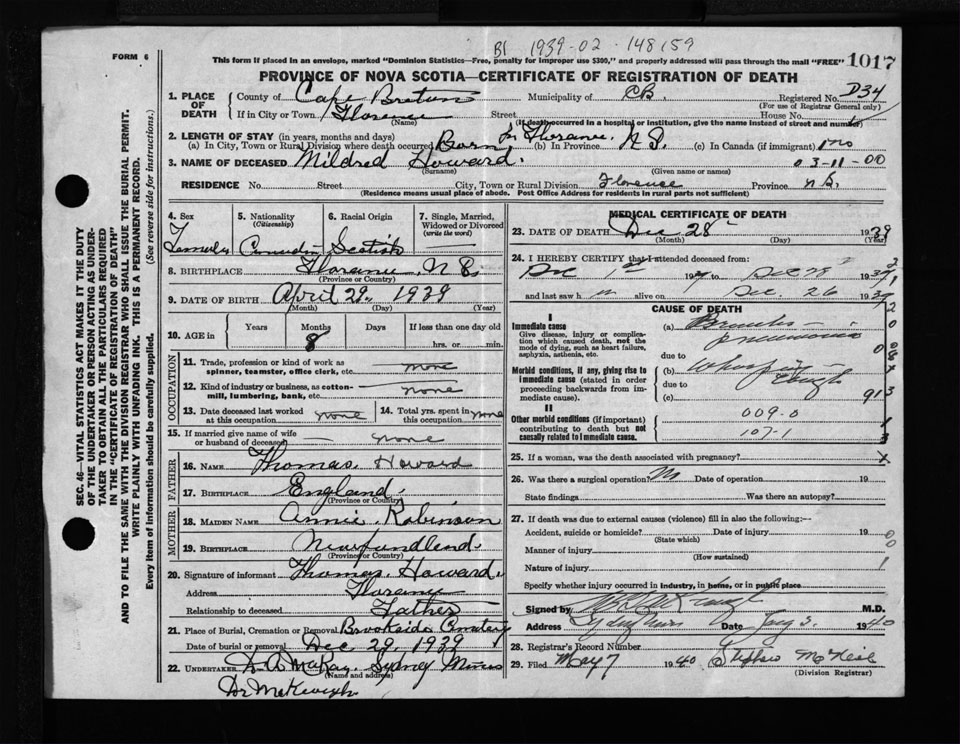 B1 1939-02-148159
FORM 6
This form if placed in an envelope, marked "Dominion Statistics—Free, penalty for improper use $300," and properly addressed will pass through the mail "FREE" 1017
PROVINCE OF NOVA SCOTIA—CERTIFICATE OF REGISTRATION OF DEATH
1. PLACE OF DEATH County of Cape Breton Municipality of C.B. Registered No. D34
(For use of Registrar General only)
If in City or Town Florence Street House No.
(Name) (If death occurred in a hospital or institution, give the name instead of street and number)
2. LENGTH OF STAY (in years, months and days)
(a) In City, Town or Rural Division where death occurred Born in Florence (b) In Province N.S. (c) In Canada (if immigrant)
3. NAME OF DECEASED Mildred Howard. 03-11-00
(Surname) (Given name or names)
RESIDENCE No. Street City, Town or Rural Division Florence Province N.S.
(Residence means usual place of abode. Post Office Address for residents in rural parts not sufficient)
4. Sex Female
5. Nationality (Citizenship) Canadian
6. Racial Origin Scotish
7. Single, Married, Widowed or Divorced (write the word)
8. BIRTHPLACE Florence, N.S.
(Province or Country)
9. DATE OF BIRTH April 29, 1939
(Month) (Day) (Year)
10. AGE in Years Months Days If less than one day old
8 hrs. or min.
OCCUPATION
11. Trade, profession or kind of work as spinner, teamster, office clerk, etc. none
12. Kind of industry or business, as cotton-mill, lumbering, bank, etc. none
13. Date deceased last worked at this occupation none
14. Total yrs. spent in this occupation none
15. If married give name of wife or husband of deceased — none
FATHER
16. NAME Thomas Howard
17. BIRTHPLACE England
(Province or Country)
MOTHER
18. MAIDEN NAME Annie Robinson
19. BIRTHPLACE Newfundlend
(Province or Country)
20. Signature of informant Thomas Howard
Address Florence
Relationship to deceased Father
21. Place of Burial, Cremation or Removal Brookside Cemetery
Date of burial or removal Dec 29, 1939
22. UNDERTAKER D. A. McKay, Sydney Mines
(Name and address)
Dr McKeough
MEDICAL CERTIFICATE OF DEATH
23. DATE OF DEATH Dec 28 1939
(Month) (Day) (Year)
24. I HEREBY CERTIFY that I attended deceased from:
Dec 1st 1939 to Dec 28 1939
and last saw h alive on Dec. 26 1939
CAUSE OF DEATH
I
Immediate cause
Give disease, injury or complication which caused death, not the mode of dying, such as heart failure, asphyxia, asthenia, etc.
(a) Broncho-pneumonia
due to
Morbid conditions, if any, giving rise to immediate cause (stated in order proceeding backwards from immediate cause).
(b) Whooping Cough
due to
(c)
II
Other morbid conditions (if important) contributing to death but not causally related to immediate cause.
009-0
107-1
25. If a woman, was the death associated with pregnancy?
26. Was there a surgical operation? Date of operation 19
State findings Was there an autopsy?
27. If death was due to external causes (violence) fill in also the following:—
Accident, suicide or homicide? Date of injury 19
(State which)
Manner of injury
(How sustained)
Nature of injury
Specify whether injury occurred in industry, in home, or in public place
Signed by M.D.
Address Sydney Mines Date Jany 3. 1940
28. Registrar's Record Number
29. Filed May 7 1940 Stephen McNeil
(Division Registrar)
SEC. 46—VITAL STATISTICS ACT MAKES IT THE DUTY
OF THE UNDERTAKER OR PERSON ACTING AS UNDER-
TAKER TO OBTAIN ALL THE PARTICULARS REQUIRED
IN THE "CERTIFICATE OF REGISTRATION OF DEATH"
AND TO FILE THE SAME WITH THE DIVISION REGISTRAR WHO SHALL ISSUE THE BURIAL PERMIT.
WRITE PLAINLY WITH UNFADING INK. THIS IS A PERMANENT RECORD.
Every item of information should be carefully supplied. (See reverse side for instructions.)